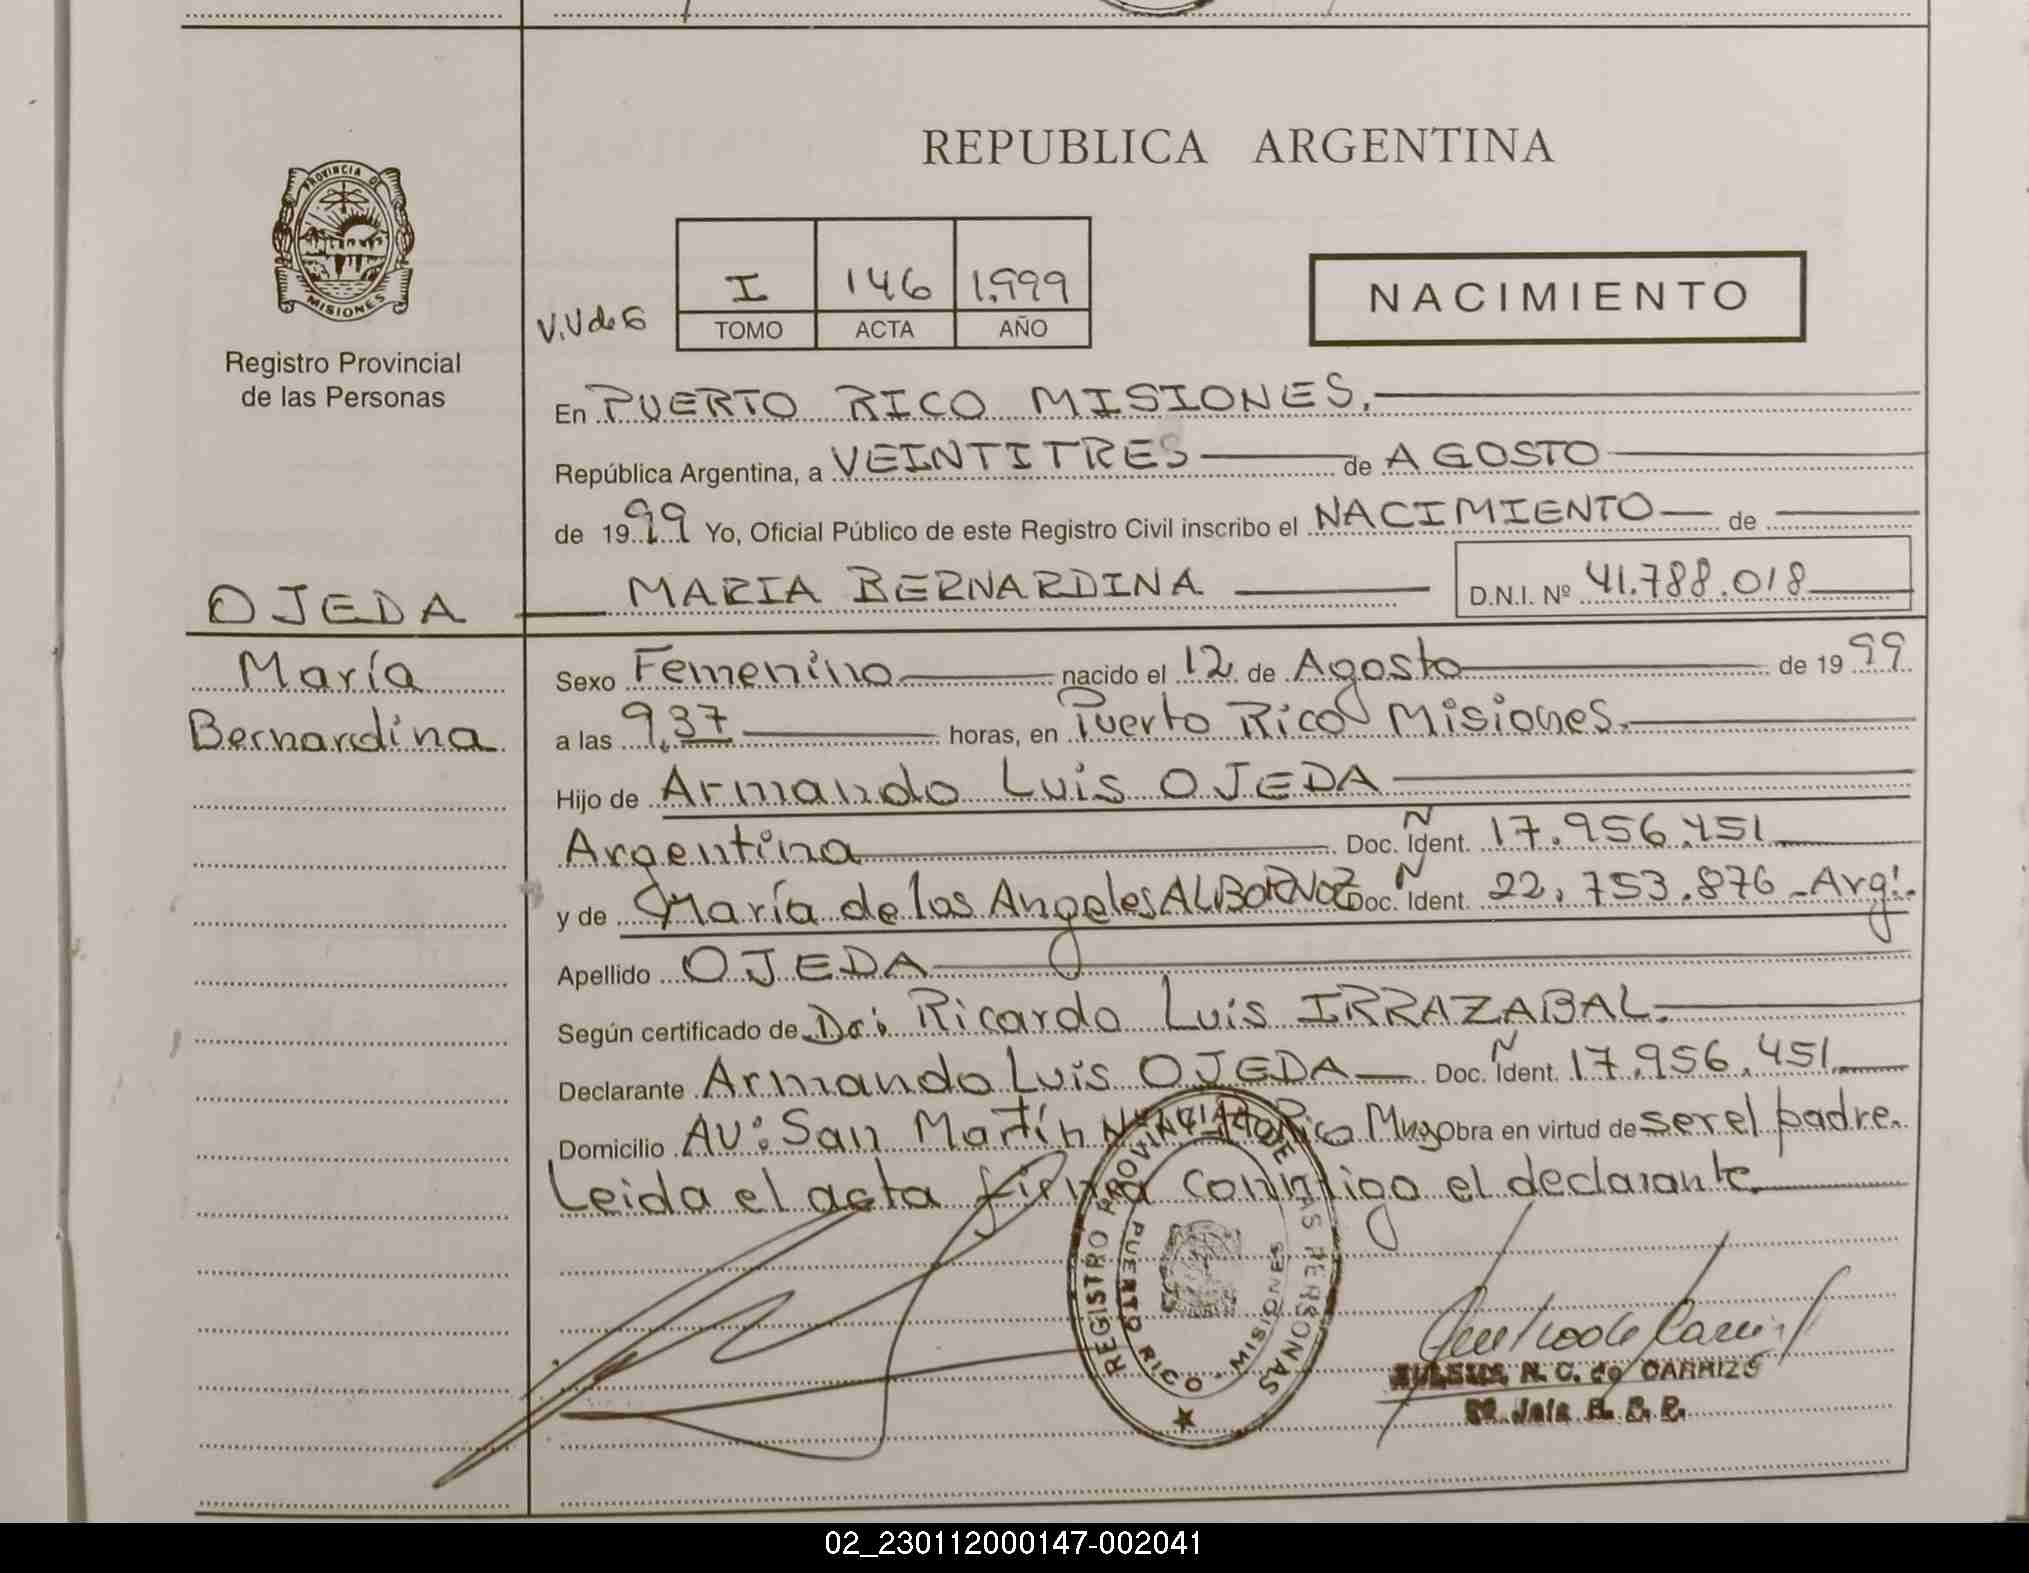 REPUBLICA ARGENTINA
PROVINCIA DE
MISIONES
Registro Provincial
de las Personas
V.V de G
I 146 1.999
TOMO ACTA AÑO
NACIMIENTO
En PUERTO RICO MISIONES.
República Argentina, a VEINTITRES de AGOSTO
de 1999 Yo, Oficial Público de este Registro Civil inscribo el NACIMIENTO de
OJEDA MARIA BERNARDINA D.N.I. Nº 41.788.018
María
Bernardina
Sexo Femenino nacido el 12 de Agosto de 1999
a las 9,37 horas, en Puerto Rico Misiones.
Hijo de Armando Luis OJEDA
Argentina Doc. Ñ Ident. 17.956.451
y de María de los Angeles ALBORNOZ Doc. Ñ Ident. 22.753.876 - Arg:.
Apellido OJEDA
Según certificado de Dr: Ricardo Luis IRRAZABAL.
Declarante Armando Luis OJEDA Doc. Ñ Ident. 17.956.451
Domicilio Av: San Martín Pto Rico Mnes obra en virtud de ser el padre.
Leida el acta firma conmigo el declarante
REGISTRO PROVINCIAL DE LAS PERSONAS
PUERTO RICO - MISIONES
N. C. de CARRIZO
02_230112000147-002041